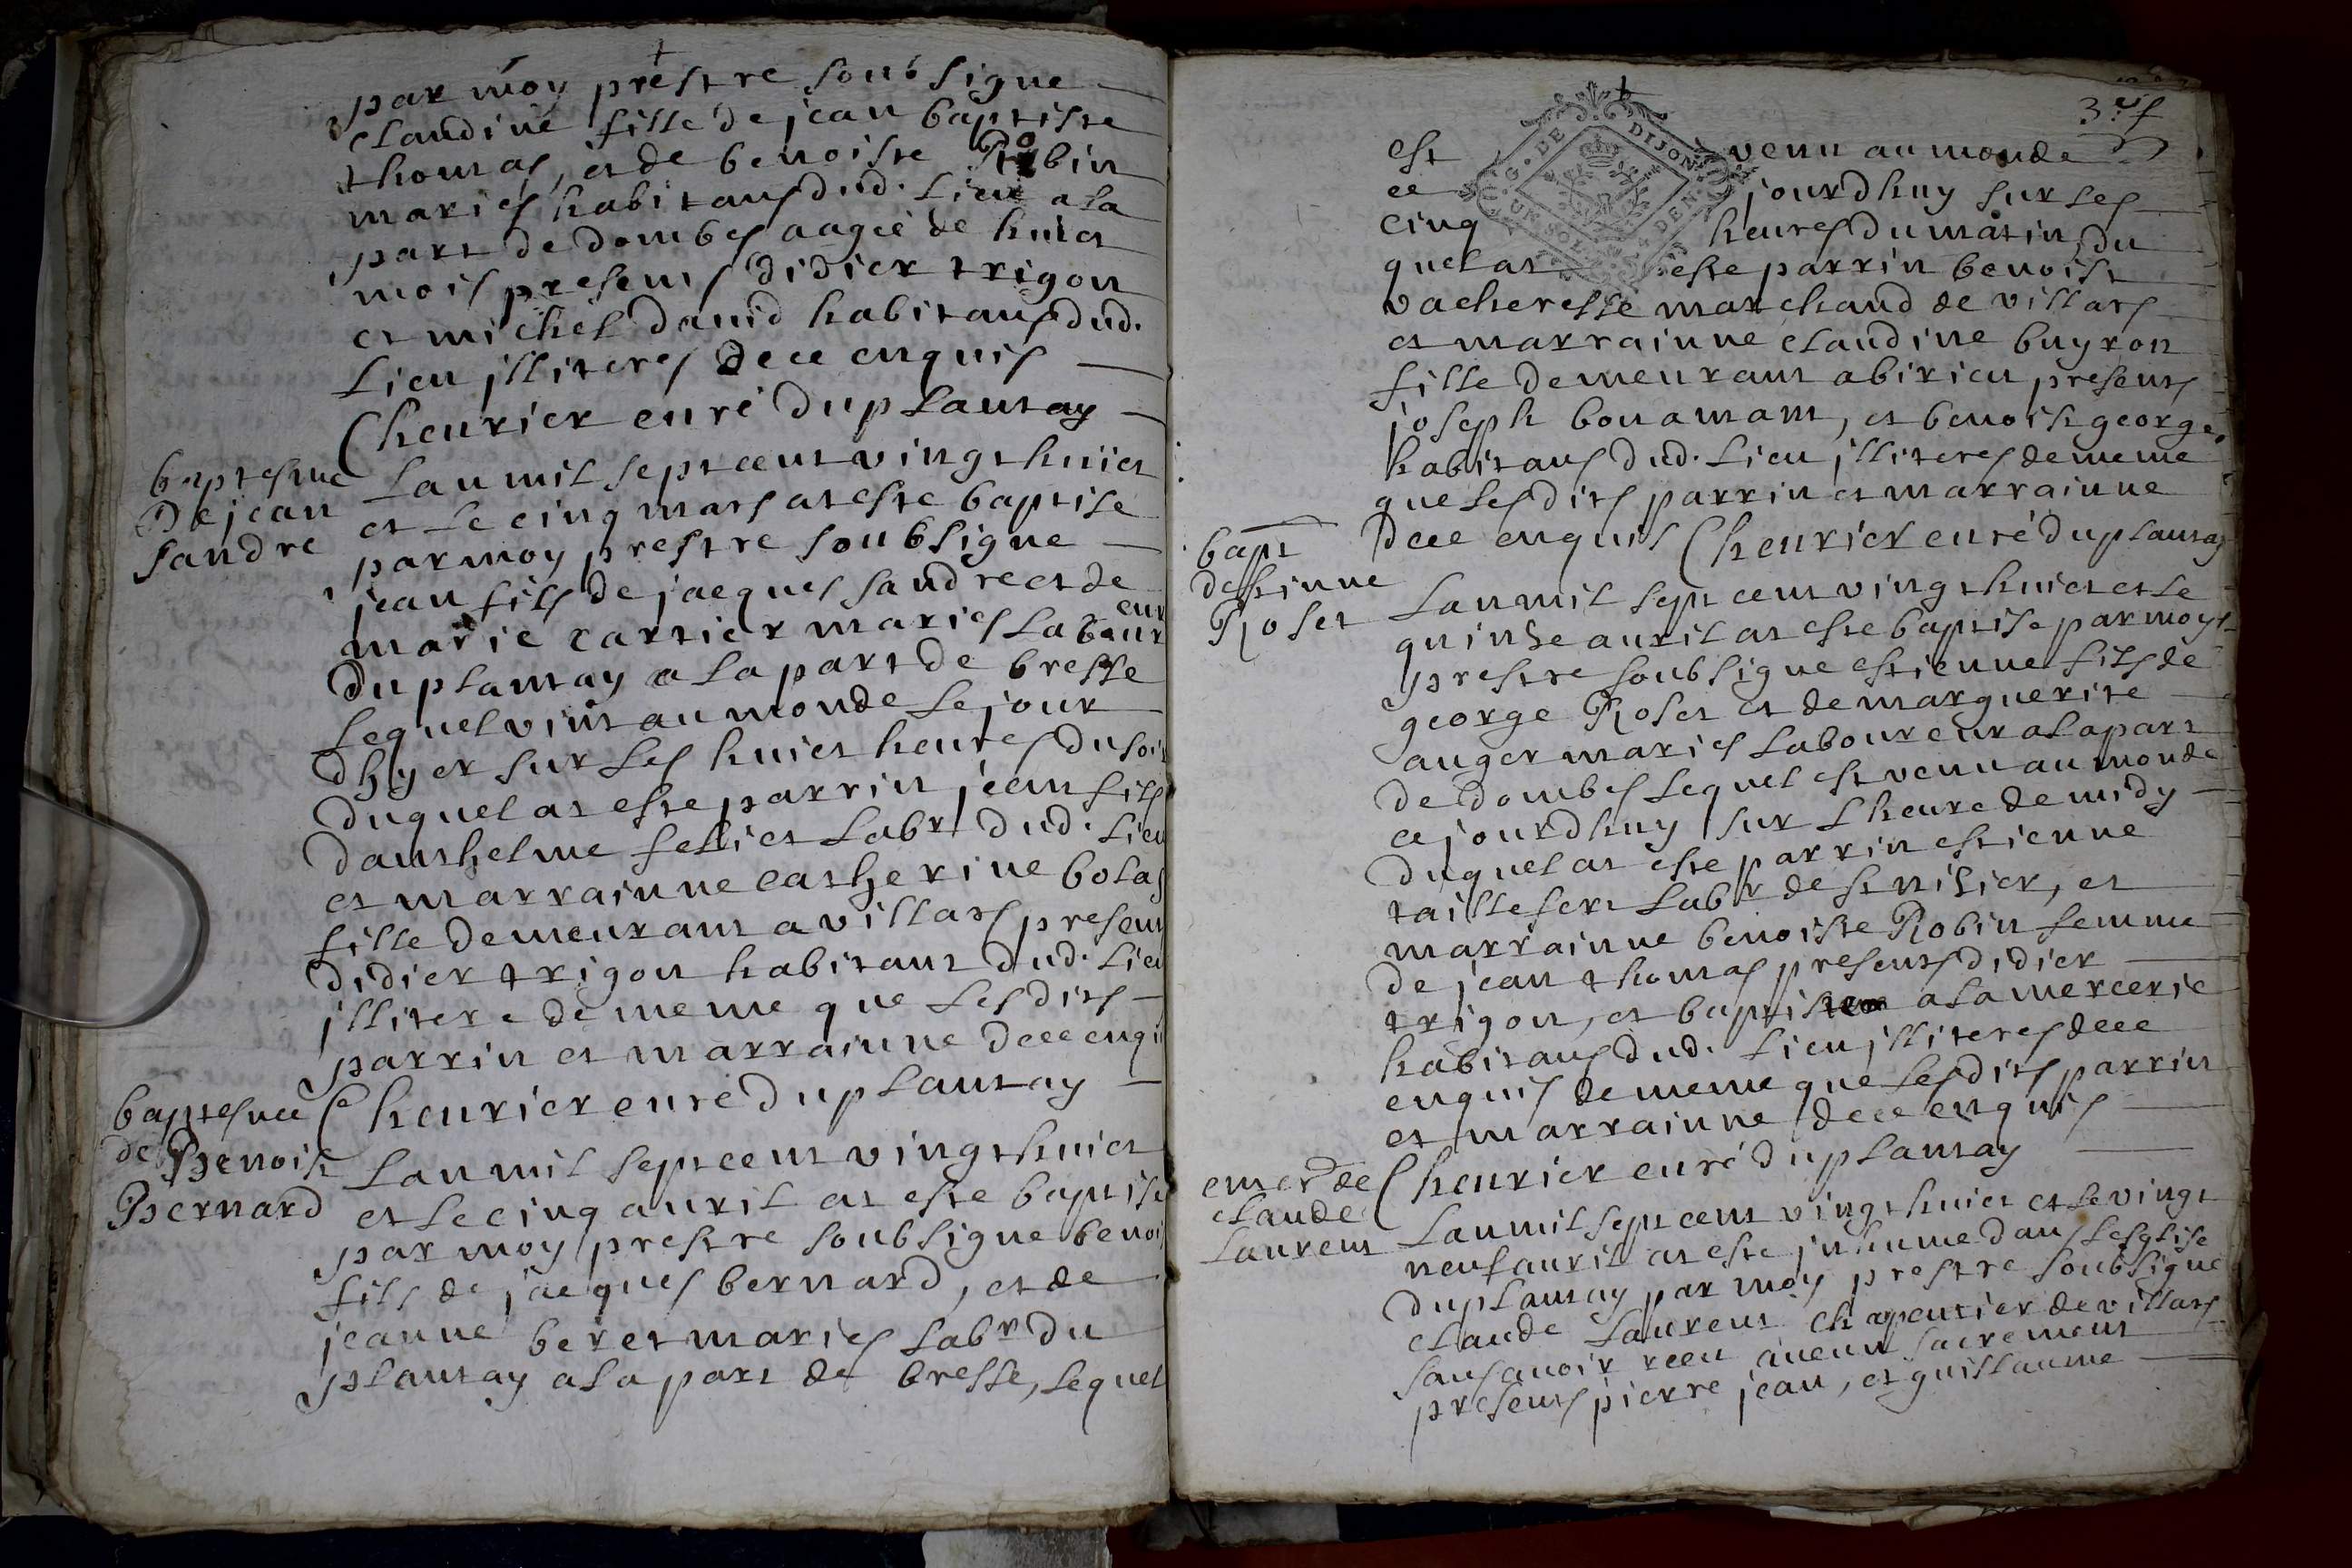 par moy prestre soubsigne
claudine fille de jean baptiste
thomas, et de benoiste Robin
mariés habitans dud. lieu a la
part de dombes aagée de huict
mois presens didier trigon
et michel david habitans dud.
lieu illiteres de ce enquis
Cheurier curé du plantay
baptesme
De jean
sandre
Lan mil sept cent vingt huict
et le cinq mars at esté baptisé
par moy prestre soubsigne
jean fils de jacques sandre et de
marie cartier mariés laboureur
du plantay a la part de bresse
lequel vint au monde le jour
dhyer sur les huict heures du soir
duquel at esté parrin jean fils
danthelme felliet labr dud. lieu
et marrainne catherine bolas
fille demeurant a villars presens
didier trigon habitant dud. lieu
illitere de meme que lesdits
parrin et marrainne de ce enqui
Cheurier curé du plantay
baptesme
de Benoist
Bernard
Lan mil sept cent vingt huict
et le cinq auril at esté baptisé
par moy prestre soubsigne benoi
fils de jacques bernard, et de
jeanne beret mariés labr du
plantay a la part de bresse, lequel
3e f
G. DE DIJON
UN SOL DEN.
est venu au monde
ce jourdhuy sur les
cinq heures du matin du
quel at esté parrin benoist
vacheresse marchand de villars
et marrainne claudine buyron
fille demeurant a birieu presens
joseph bonamant, et benoist george
habitans dud. lieu illiteres de meme
que lesdits parrin et marrainne
de ce enquis Cheurier curé du plantay
bapt
destinne
Roset
Lan mil sept cent vingt huict et le
quinse auril at esté baptisé par moy
prestre soubsigne estienne fils de
george Roset et de marguerite
auger mariés laboureur a la part
de dombes lequel est venu au monde
ce jourdhuy sur lheure de midy
duquel at esté parrin estienne
taillesert labr de st nisier, et
marrainne benoiste Robin femme
de jean thomas presens didier
trigon, et baptiste a la mercerie
habitans dud. lieu illiteres de ce
enquis de meme que lesdits parrin
et marrainne de ce enquis
Cheurier curé du plantay
enter de
claude
laurent
Lan mil sept cent vingt huict et le vingt
neuf auril at esté inhumé dans lesglise
du plantay par moy prestre soubsigne
claude laurent chapentier de villars
sans auoir receu aucun sacrement
presens pierre jean, et guillaume